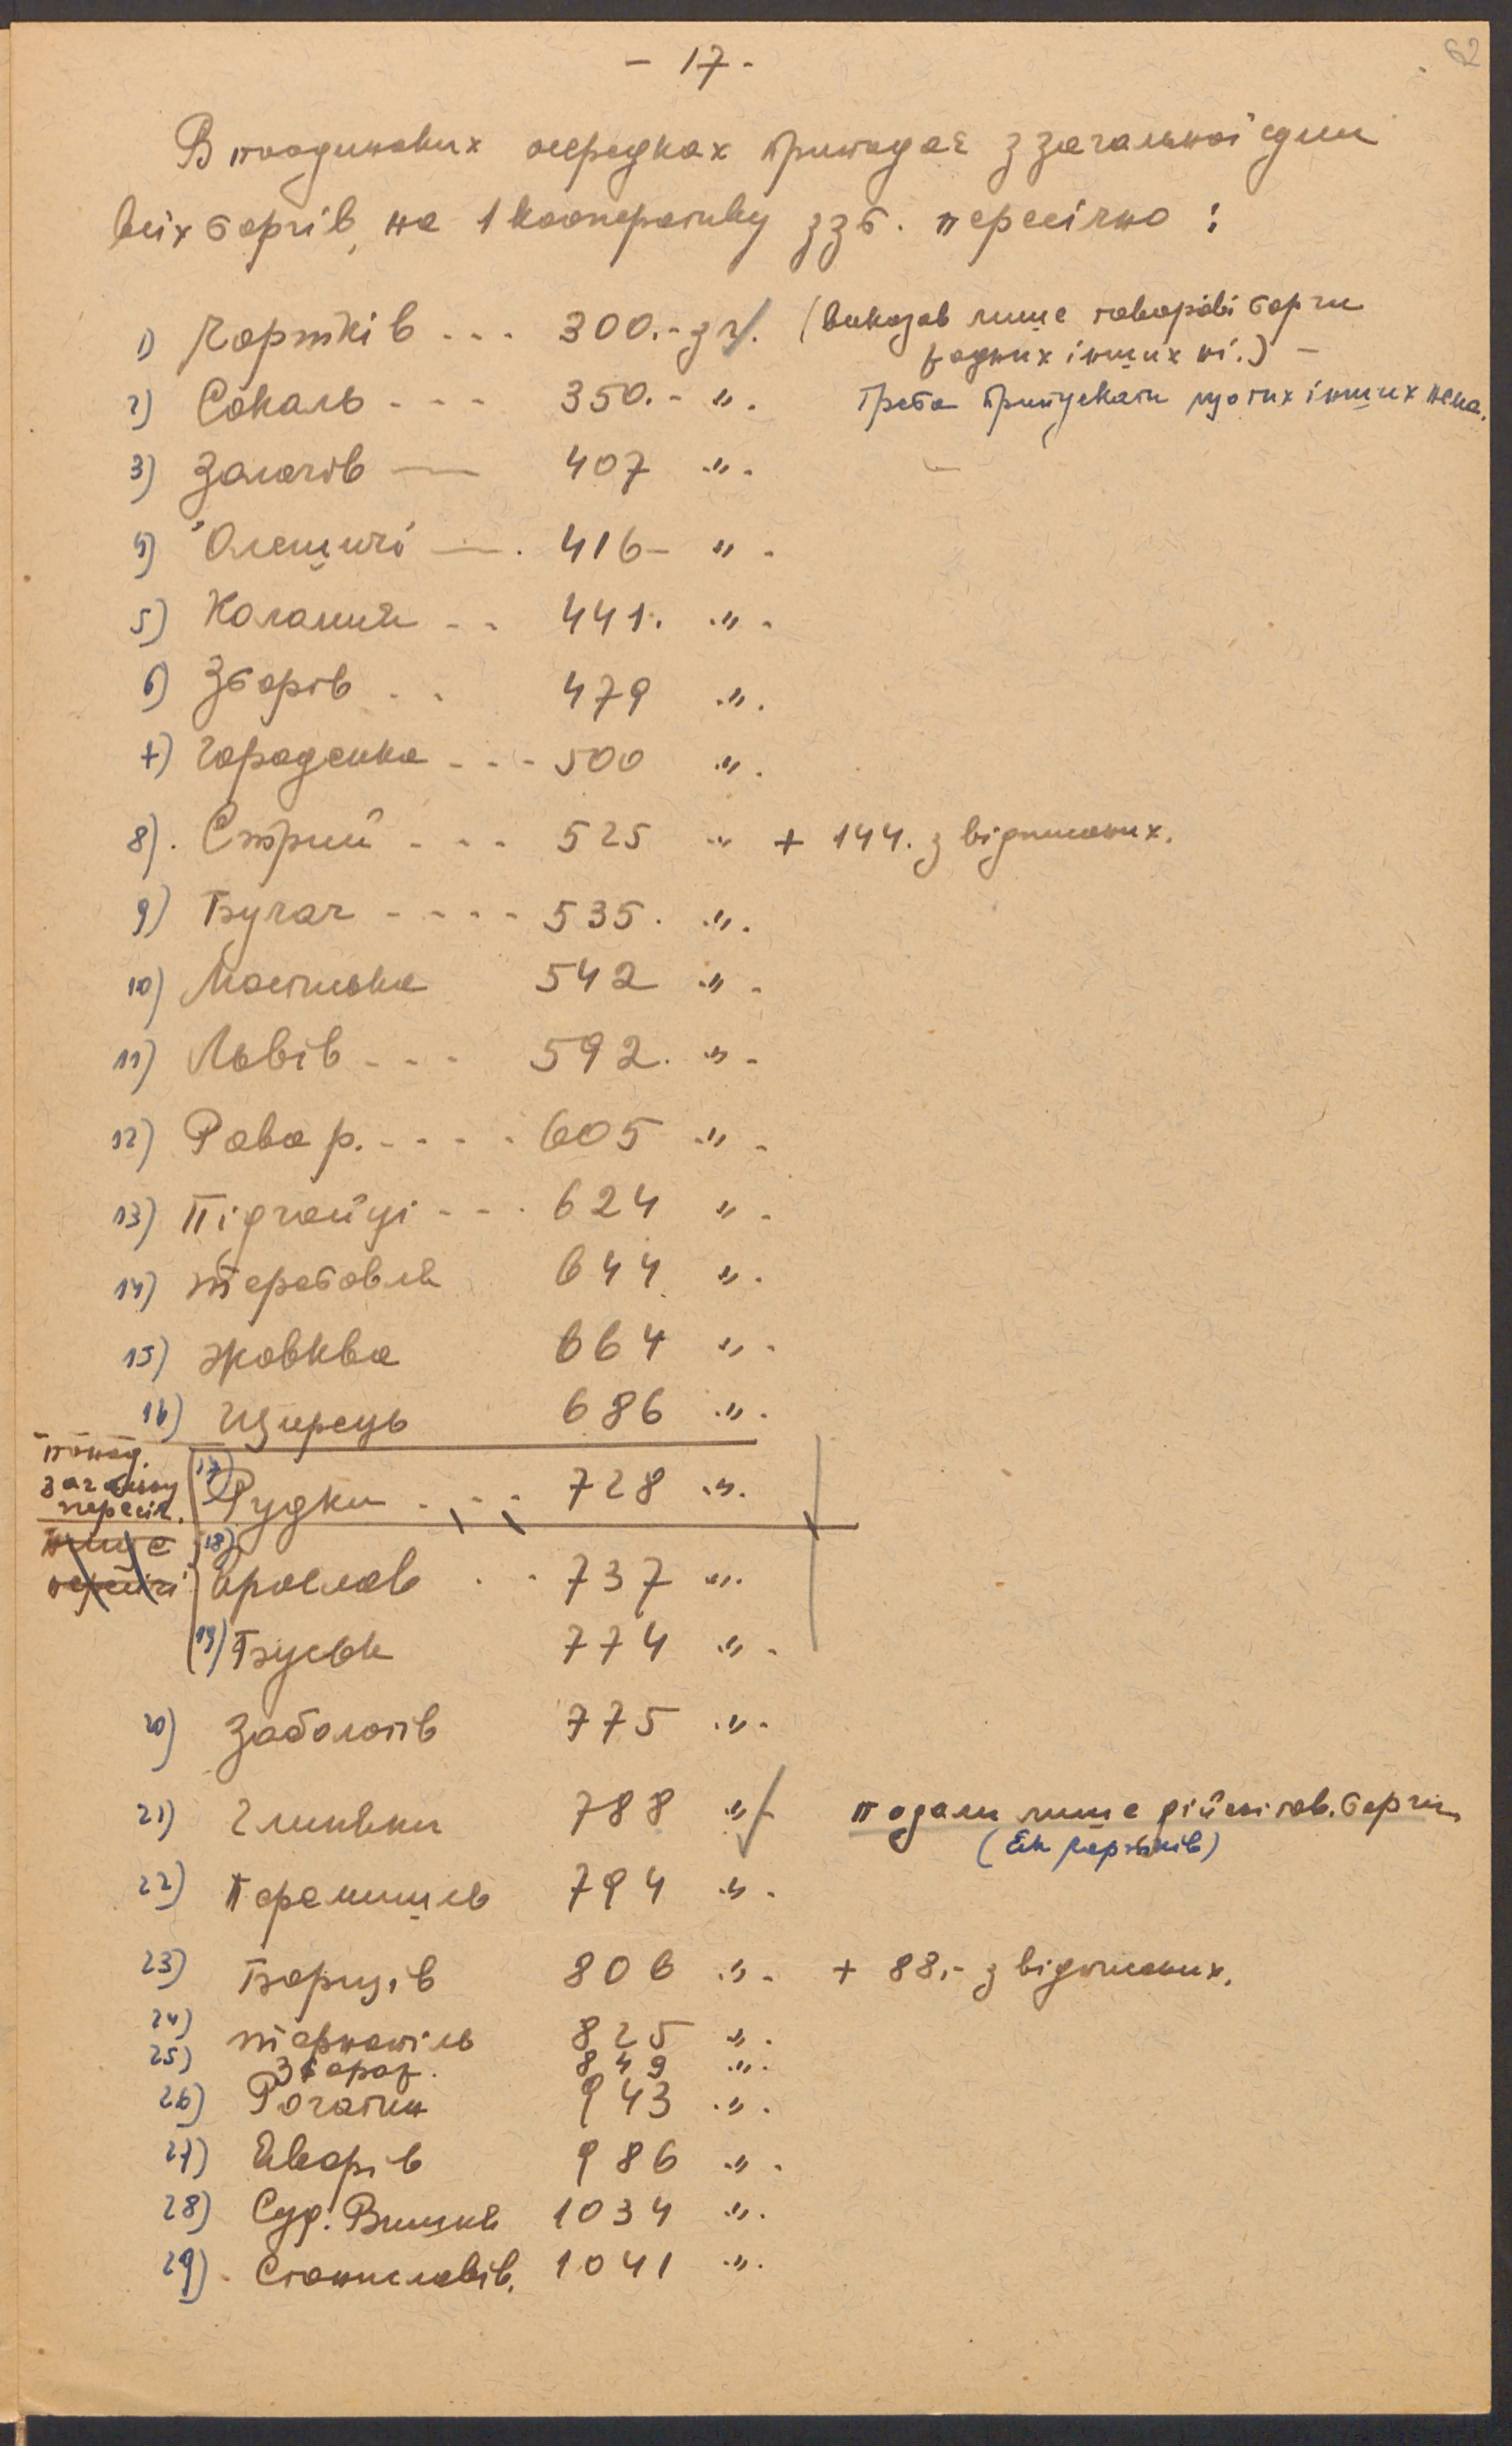 - 17 -
62
В поодиноких осередках припадає з загальної суми
всіх боргів, на 1 кооперативу ззб. пересічно :
1) Чортків - - - 300.- зл. (виказав лише товарові борги
жадних інших ні.) -
2) Сокаль - - - 350.- ". Треба припускати що тих інших нема.
3) Золочів — 407 ".
4) Олешичі — . 416 - " -
5) Коломия - - 441. " -
6) Зборів . . 479 ".
7) Городенка - - - 500 ".
8). Стрий - - - 525 " + 144. з відписаних.
9) Бучач - - - - 535. ".
10) Мостиська 542 " -
11) Львів - - - 592. " -
12) Рава р. - - - - 605 " -
13) Підгайці - - - 624 " -
14) Теребовля 644 " .
15) Жовква 664 " -
16) Щирець 686 ".
понад
загальну
пересіч.
17) Рудки . - - - 728 ".
18) Ярослав . - 737 ".
19) Буськ 774 " -
20) Заболотів 775 " -
21) Глиняни 788 " - подали лише дійсні тов. борги
(як Чортків)
22) Перемишль 794 " -
23) Борщів 806 " - + 88.- з відписаних.
24) Тернопіль 825 ".
25) Збараж. 849 ".
26) Рогатин 943 ".
27) Яворів 986 " -
28) Суд. Вишня 1034 ".
29) Станиславів. 1041 ".